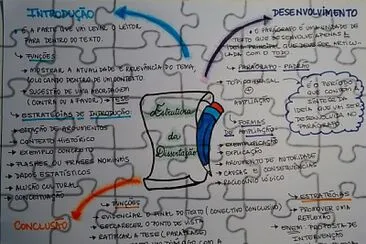 INTRODUÇÃO
É A PARTE QUE VAI LEVAR O LEITOR
PARA DENTRO DO TEXTO.
FUNÇÕES
MOSTRAR A ATUALIDADE E RELEVÂNCIA DO TEMA
(COLOCANDO DENTRO DE UM CONTEXTO)
SUGESTÃO DE UMA ABORDAGEM
(CONTRA OU A FAVOR) → TESE
ESTRATÉGIAS DE INTRODUÇÃO
CITAÇÃO DE ARGUMENTOS
CONTEXTO HISTÓRICO
EXEMPLO CONCRETO
FLASHES OU FRASES NOMINAIS
DADOS ESTATÍSTICOS
ALUSÃO CULTURAL
CONCEITUAÇÃO
Estrutura
da
Dissertação
DESENVOLVIMENTO
O PARÁGRAFO É UMA UNIDADE DE
TEXTO QUE DESENVOLVE APENAS 1
IDEIA PRINCIPAL QUE DEVE SER ARTICU-
LADA COM O TODO
PARÁGRAFO - PADRÃO
TÓPICO FRASAL
+
AMPLIAÇÃO
É O PERÍODO
QUE CONTÉM A
SÍNTESE DA
IDEIA QUE VAI SER
DESENVOLVIDA NO
PARÁGRAFO
FORMAS
DE AMPLIAÇÃO
EXEMPLIFICAÇÃO
EXPLICAÇÃO
ARGUMENTO DE AUTORIDADE
CAUSAS E CONSEQUÊNCIAS
RACIOCÍNIO LÓGICO
CONCLUSÃO
FUNÇÕES
EVIDENCIAR O FINAL DO TEXTO (CONECTIVO CONCLUSIVO)
ESCLARECER O PONTO DE VISTA
RATIFICAR A TESE (PARÁFRASE)
ESTRATÉGIAS
PROMOVER UMA
REFLEXÃO
ENEM: PROPOSTA DE
INTERVENÇÃO